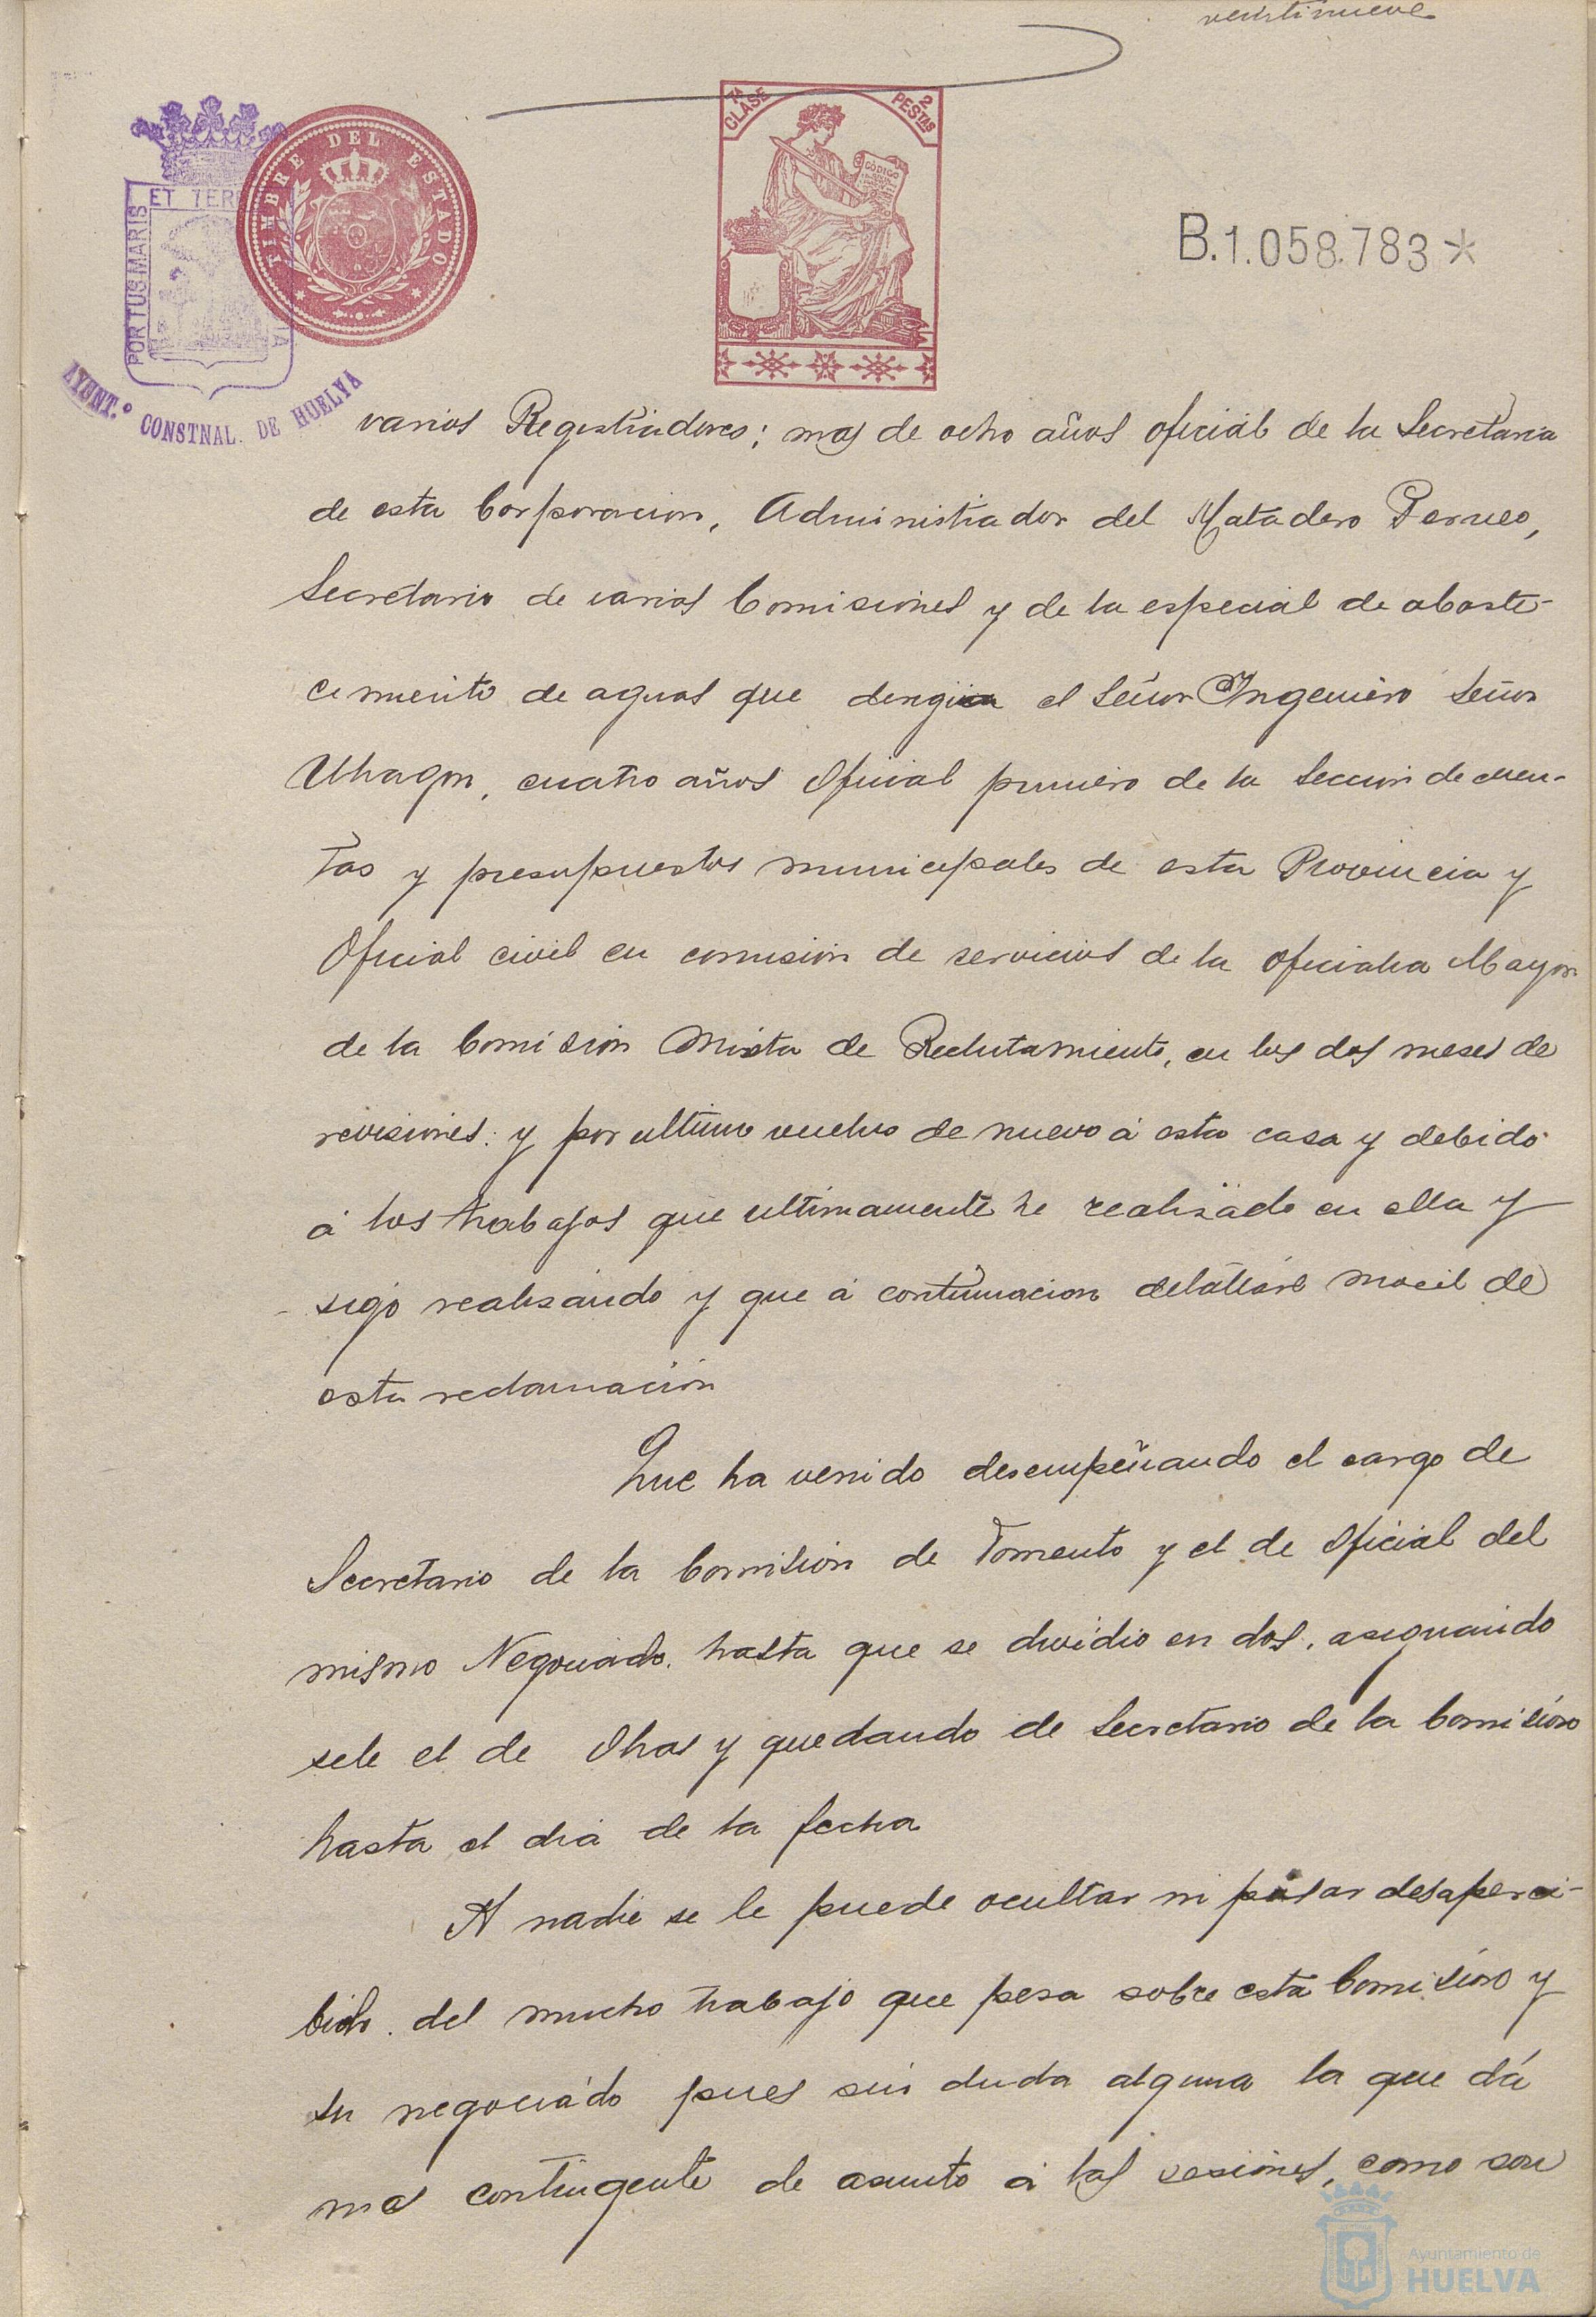 veintinueve
7ª CLASE
2 PESTAS
CÓDIGO
TIMBRE DEL ESTADO
PORTUS MARIS
ET TER
AYUNT.º CONSTNAL. DE HUELVA
B.1.058.783*
varios Registradores; mas de ocho años oficial de la Secretaria
de esta Corporacion, Administrador del Matadero
Secretario de varias Comisiones y de la especial de abaste-
cimiento de aguas que el Señor Ingeniero Señor
Uhagon, cuatro años Oficial primero de la Seccion de cuen-
tas y presupuestos municipales de esta Provincia y
Oficial civil en comision de servicios de la Oficialia Mayor
de la Comision Mixta de Reclutamiento, en los dos meses de
revisiones: y por ultimo vuelvo de nuevo á esta casa y debido
á los trabajos que ultimamente he realizado en ella y
sigo realizando y que á continuacion detallaré movil de
esta reclamación
Que ha venido desempeñando el cargo de
Secretario de la Comision de Fomento y el de Oficial del
mismo Negociado. hasta que se dividio en dos, asignando
sele el de Obras y quedando de Secretario de la Comision
hasta el dia de la fecha
A nadie se le puede ocultar ni pasar desaperci-
bido. del mucho trabajo que pesa sobre esta Comision y
su negociado pues sin duda alguna la que dá
mas contingente de asunto á las sesiones, como son
Ayuntamiento de
HUELVA